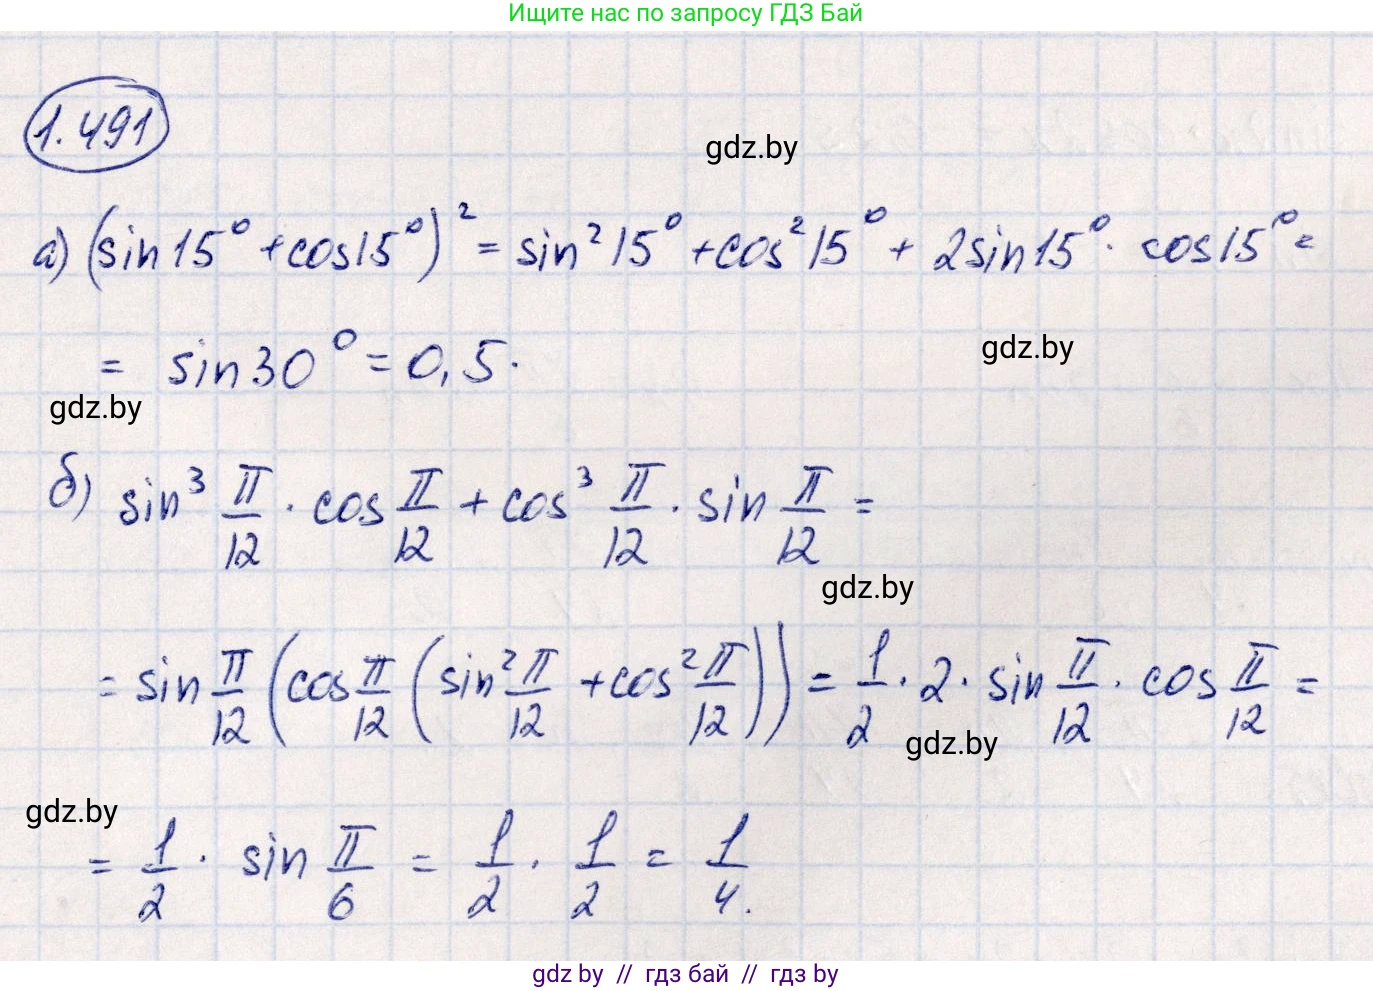 Ищите нас по запросу ГДЗ Бай
1.491
gdz.by
а) (sin15° + cos15°)² = sin²15° + cos²15° + 2sin15° · cos15° =
= sin30° = 0,5.
gdz.by
gdz.by
б) sin³ π/12 · cos π/12 + cos³ π/12 · sin π/12 =
gdz.by
= sin π/12 (cos π/12 (sin² π/12 + cos² π/12)) = 1/2 · 2 · sin π/12 · cos π/12 =
gdz.by
gdz.by
= 1/2 · sin π/6 = 1/2 · 1/2 = 1/4.
gdz by // гдз бай // гдз by